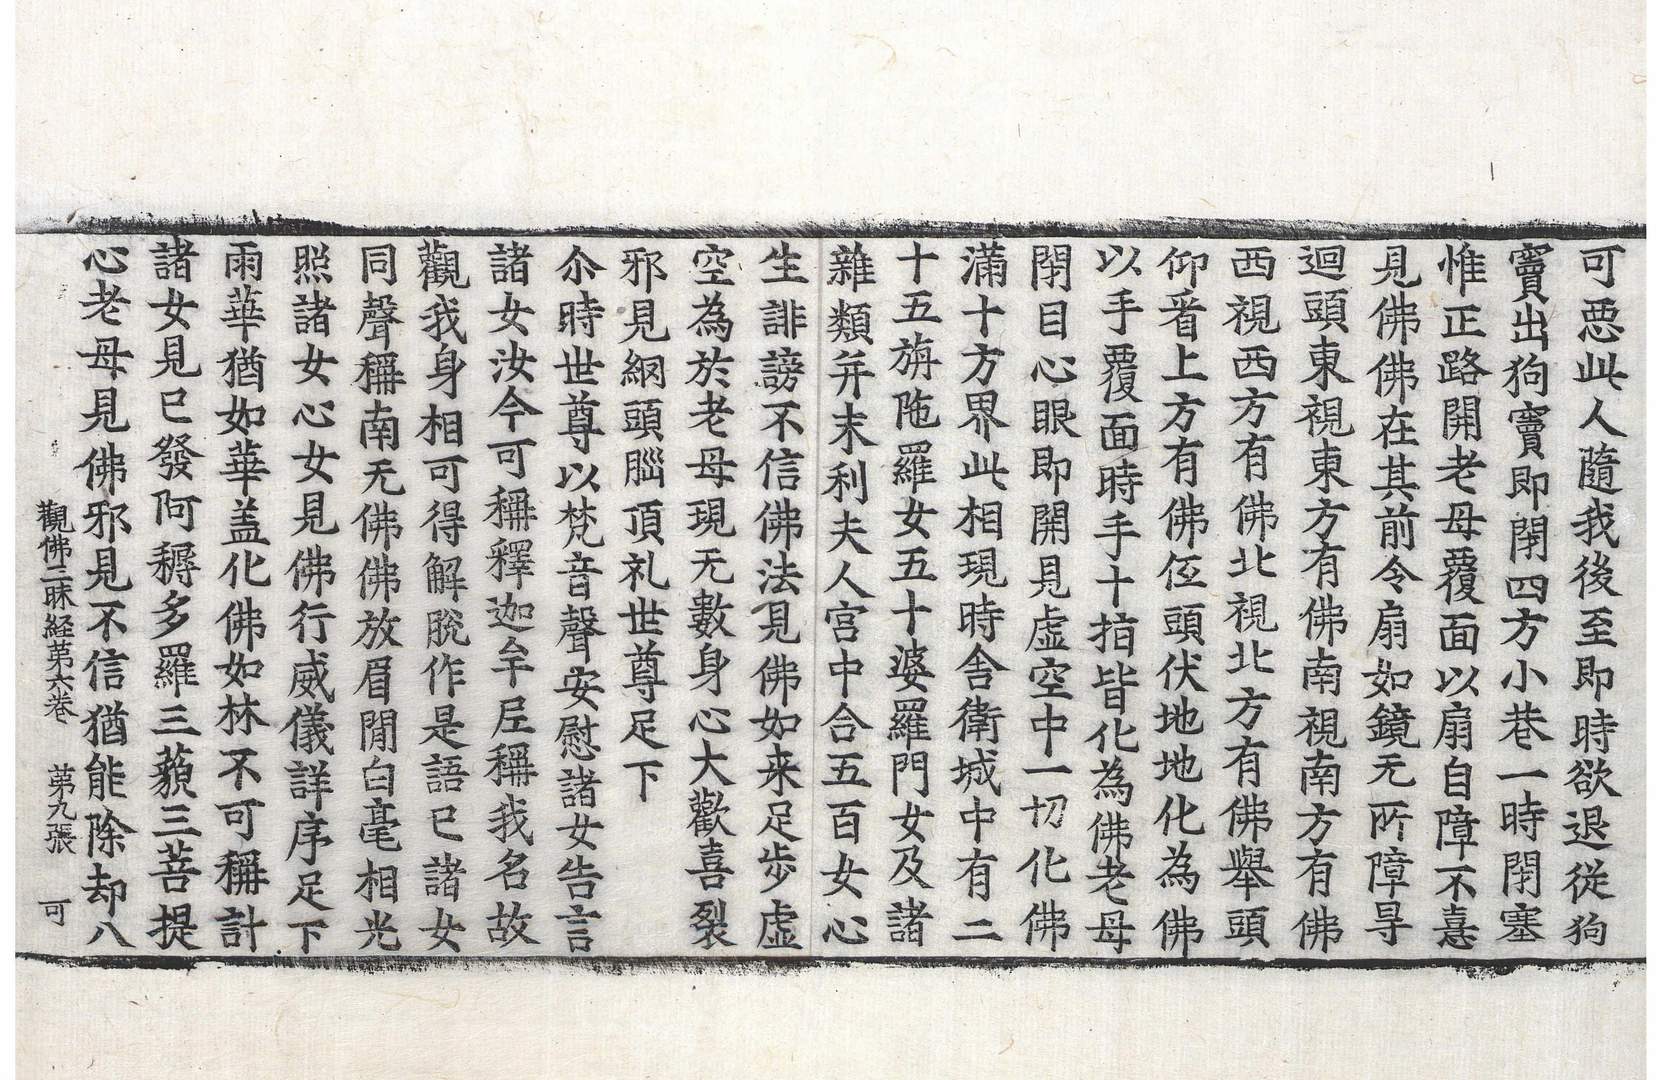 可惡此人隨我後至即時欲退從狗
竇出狗竇即閉四方小巷一時閉塞
惟正路開老母覆面以扇自障不憙
見佛佛在其前令扇如鏡无所障㝵
迴頭東視東方有佛南視南方有佛
西視西方有佛北視北方有佛舉頭
仰看上方有佛伍頭伏地地化為佛
以手覆面時手十指皆化為佛老母
閉目心眼即開見虛空中一切化佛
滿十方界此相現時舍衛城中有二
十五旃陁羅女五十婆羅門女及諸
雜類并末利夫人宮中合五百女心
生誹謗不信佛法見佛如来足步虛
空為於老母現无數身心大歡喜裂
邪見網頭腦頂礼世尊足下
尒時世尊以梵音聲安慰諸女告言
諸女汝今可稱釋迦牟尼稱我名故
觀我身相可得解脫作是語已諸女
同聲稱南无佛佛放眉閒白毫相光
照諸女心女見佛行威儀詳序足下
雨華猶如華盖化佛如林不可稱計
諸女見已發阿耨多羅三藐三菩提
心老母見佛邪見不信猶能除却八
觀佛三昧経第六巻 第九張 可